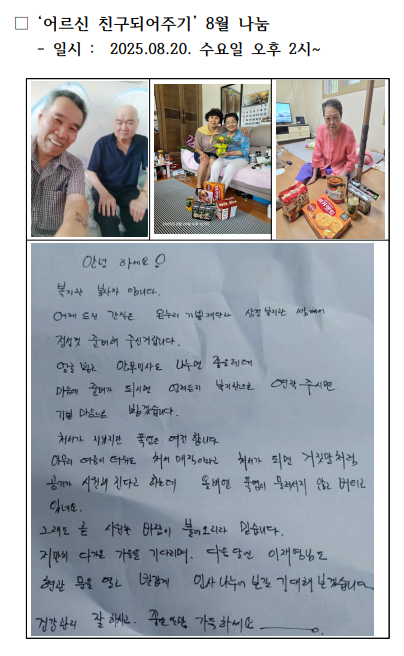 □ ‘어르신 친구되어주기’ 8월 나눔
- 일시 : 2025.08.20. 수요일 오후 2시~
안녕 하세요!
복지관 봉사자 입니다.
어제 드린 간식은 온누리 기별재단과 삼정 복지관
정성껏 준비해 주신거랍니다.
얼굴 뵙고 안부인사도 나누면 좋을텐데
마음에 준비가 되시면 언제든지 복지관으로 연락 주시면
기쁜 마음으로 뵙겠습니다.
처서가 지났지만 폭염은 여전 합니다
아무리 여름이 더워도 처서 매직이라고 처서가 되면 거짓말처럼
공기가 시원해 진다고 하는데 올해엔 폭염이 물러서지 않고 버티고
있네요.
그래도 곧 시원한 바람이 불어오리라 믿습니다.
저만치 다가온 가을을 기다리며, 다음 달엔
현관 문을 열고 반갑게 인사 나누어 보길 기대해 보겠습니다
건강관리 잘 하시고, 좋은 일만 가득하세요